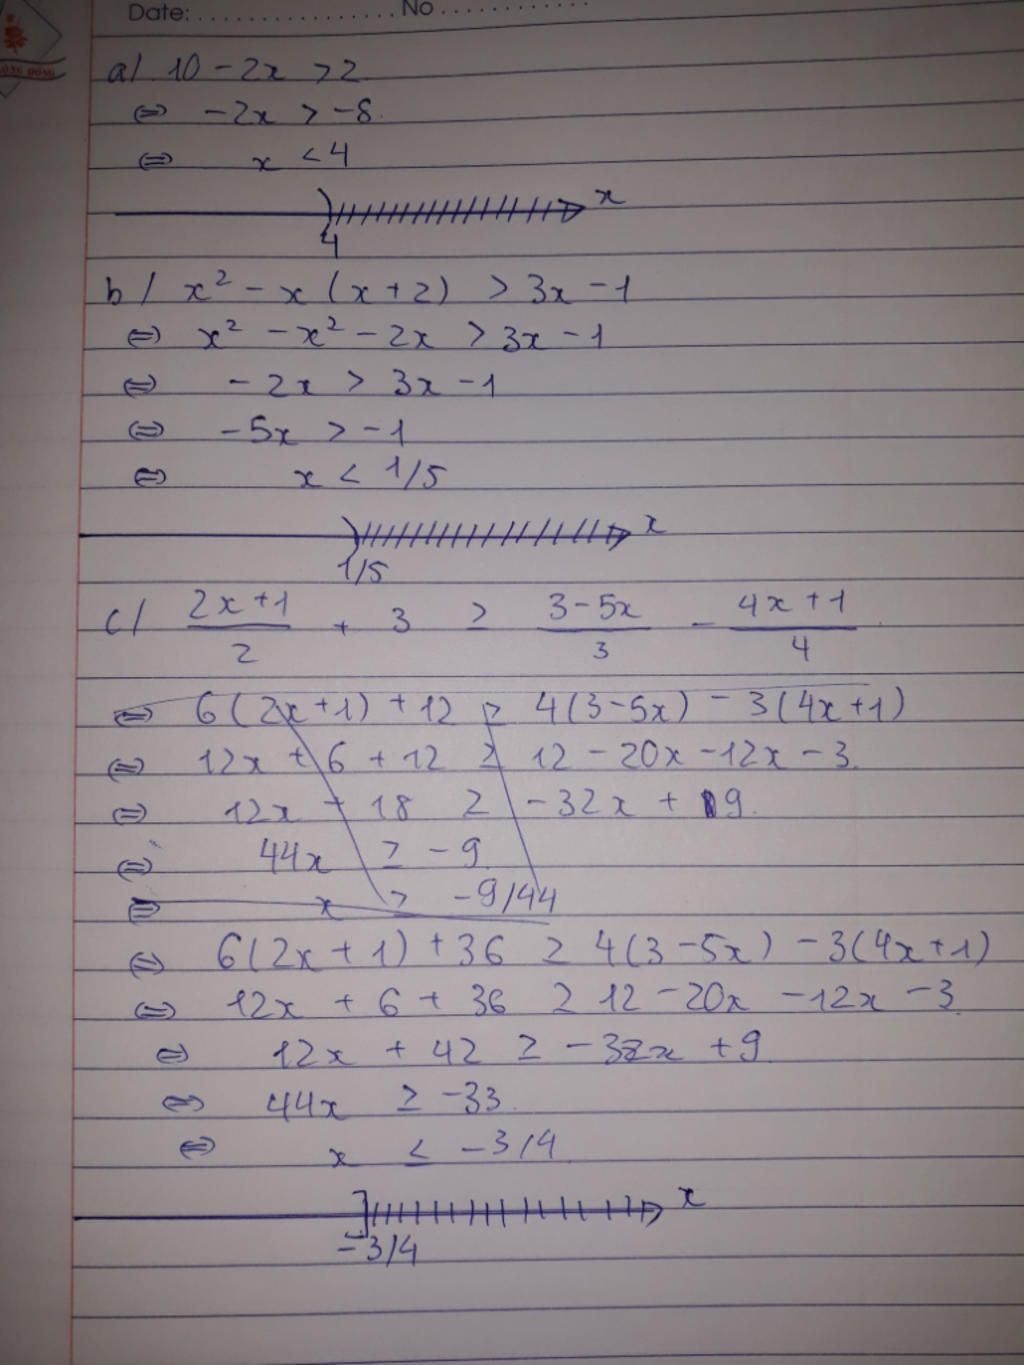 Date: ................. No ............
a/ 10 - 2x > 2
⇔ -2x > -8
⇔ x < 4
x
4
b/ x² - x (x+2) > 3x - 1
⇔ x² - x² - 2x > 3x - 1
⇔ - 2x > 3x - 1
⇔ -5x > -1
⇔ x < 1/5
x
1/5
c/ (2x+1)/2 + 3 ≥ (3-5x)/3 - (4x+1)/4
⇔ 6(2x+1) + 12 ≥ 4(3-5x) - 3(4x+1)
⇔ 12x + 6 + 12 ≥ 12 - 20x - 12x - 3
⇔ 12x + 18 ≥ -32x + 9
⇔ 44x ≥ -9
⇔ x ≥ -9/44
⇔ 6(2x+1) + 36 ≥ 4(3-5x) - 3(4x+1)
⇔ 12x + 6 + 36 ≥ 12 - 20x - 12x - 3
⇔ 12x + 42 ≥ -32x + 9
⇔ 44x ≥ -33
⇔ x ≤ -3/4
x
-3/4